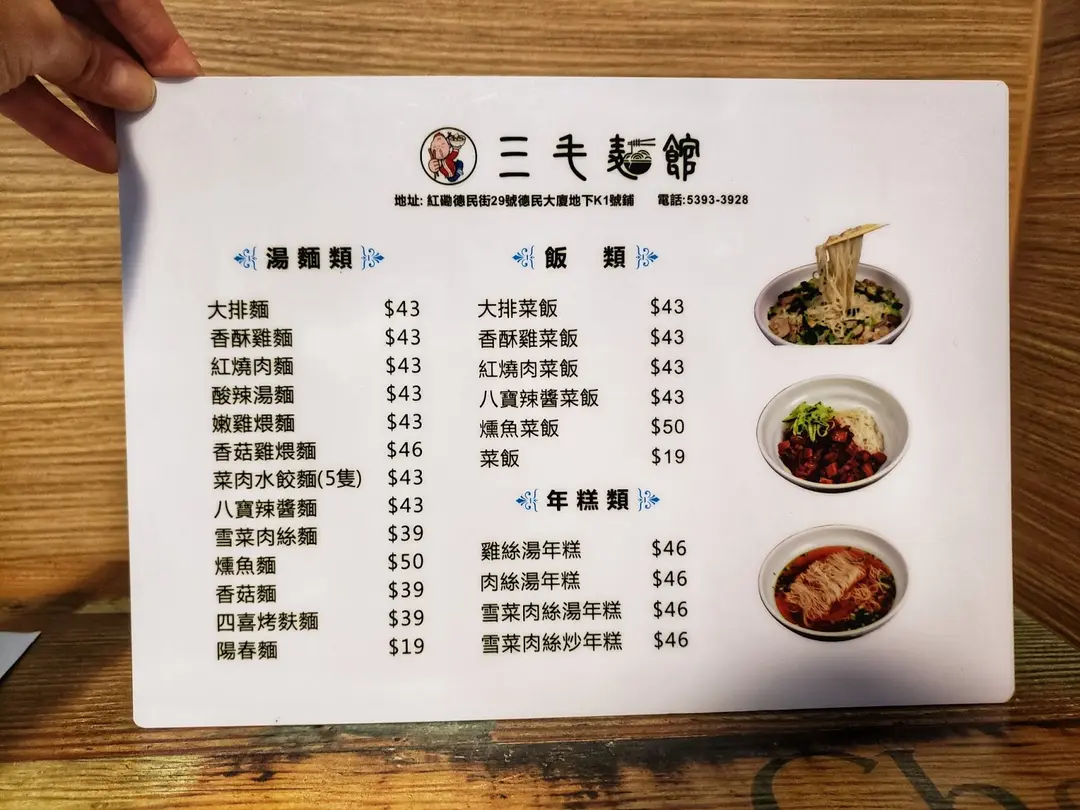 三毛麵館
地址: 紅磡德民街29號德民大廈地下K1號鋪 電話:5393-3928
湯麵類
大排麵 $43
香酥雞麵 $43
紅燒肉麵 $43
酸辣湯麵 $43
嫩雞煨麵 $43
香菇雞煨麵 $46
菜肉水餃麵(5隻) $43
八寶辣醬麵 $43
雪菜肉絲麵 $39
燻魚麵 $50
香菇麵 $39
四喜烤麩麵 $39
陽春麵 $19
飯 類
大排菜飯 $43
香酥雞菜飯 $43
紅燒肉菜飯 $43
八寶辣醬菜飯 $43
燻魚菜飯 $50
菜飯 $19
年糕類
雞絲湯年糕 $46
肉絲湯年糕 $46
雪菜肉絲湯年糕 $46
雪菜肉絲炒年糕 $46